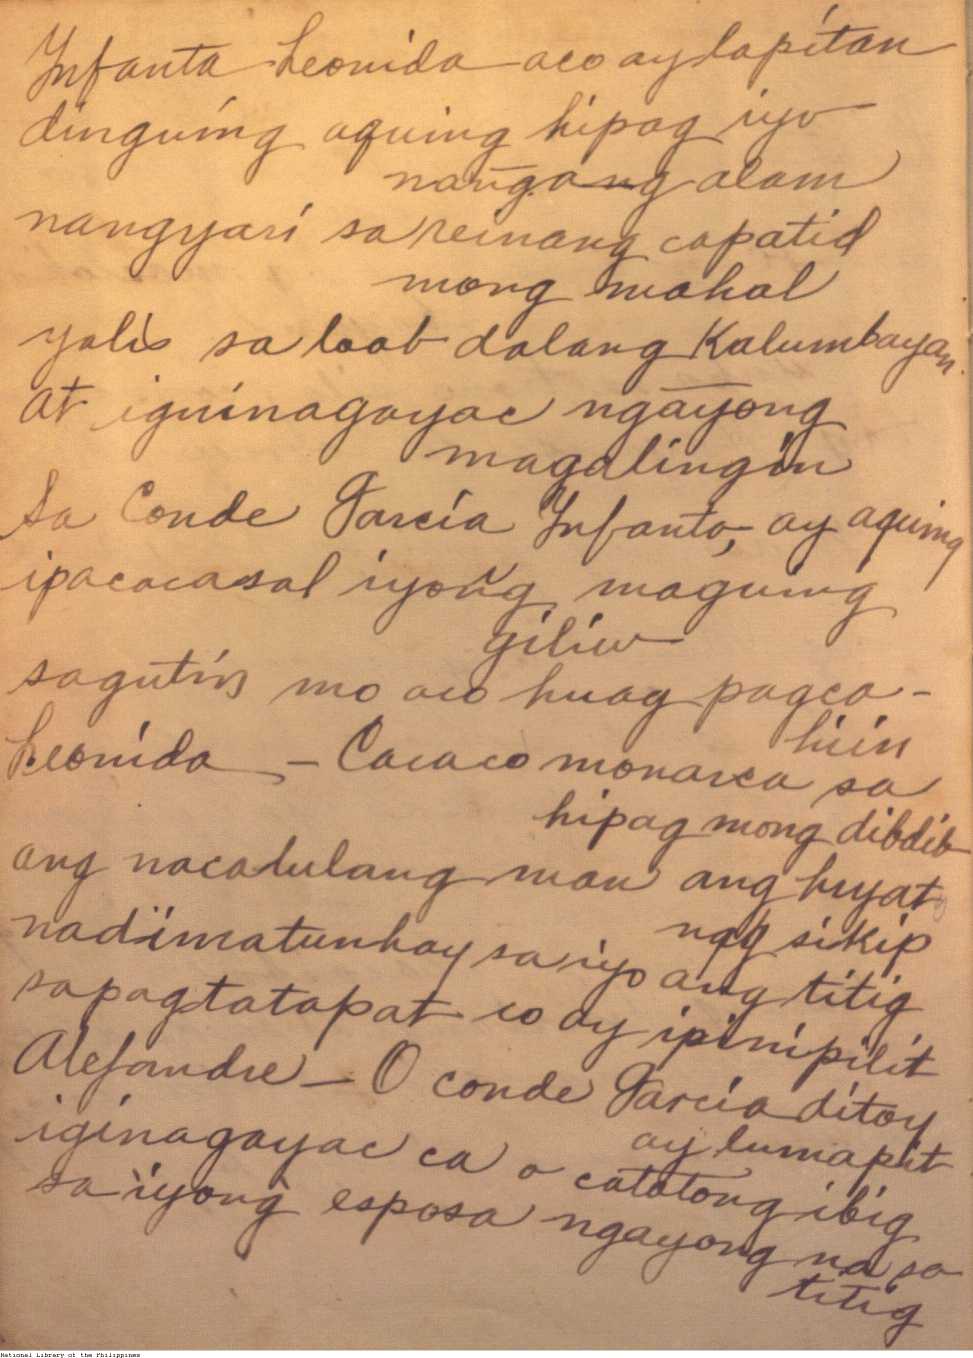 Infanta Leonida aco ay lapitan
dinguing aquing hipag iyo
nangang alam
nangyari sa reinang capatid
mong mahal
yalis sa loob dalang Kalumbayan
at iguinagayac ngayong
magalingin
Sa Conde Garcia Infanta, ay aquing
ipacacasal iyong maguing
giliw
sagutin mo aco huag pagca-
hiin
Leonida - Cacaco monarca sa
hipag mong dibdib
ang nacalulang man ang huyat
ng sikip
nadimatunhay sa iyo ang titig
sapagtatapat co ay ipinipilit
Alefandre - O conde Garcia ditoy
ay lumapit
iginagayac ca o catotong ibig
sa iyong esposa ngayong na sa
titig
National Library of the Philippines